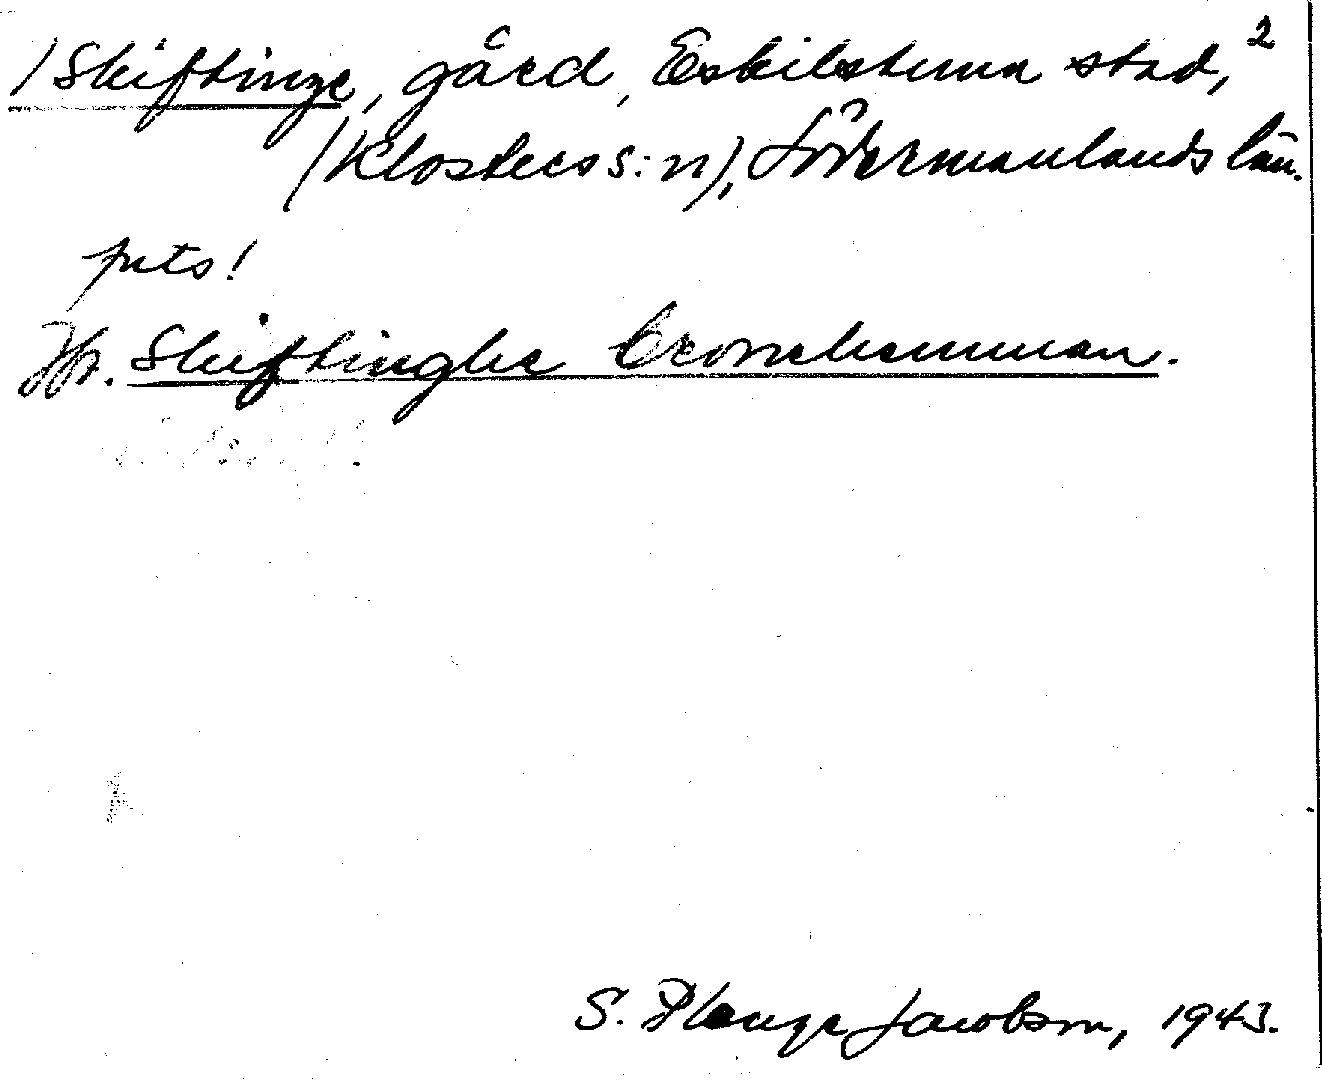 /Skiftinge, gård, Eskilstuna stad, 2
(Klosters s:n), Södermanlands län.
puts!
Skiftinghe Cronehemman.
S. Plenge Jacobson, 1943.